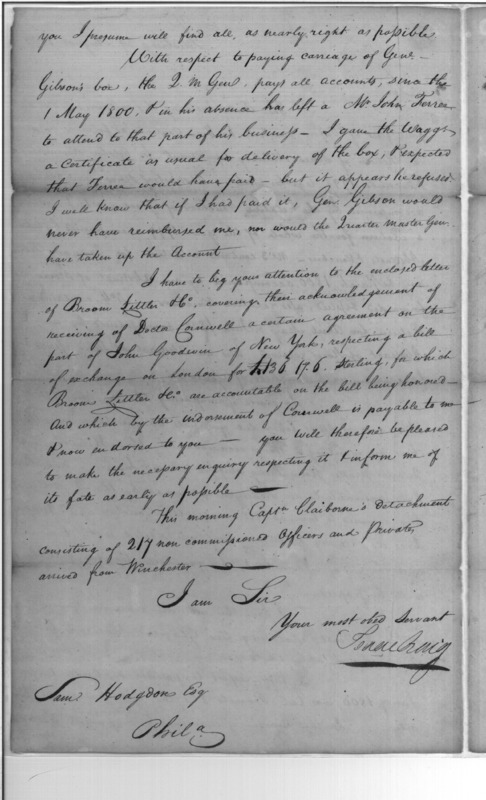 you I presume will find all, as nearly right as possible
With respect to paying carriage of Genl
Gibson's box, the Q. M Genl. pays all accounts, since the
1 May 1800. & in his absence has left a Mr John Ferree
to attend to that part of his business – I gave the Waggr
a Certificate as usual for delivery of the box, & expected
that Ferree would have paid – but it appears he refused
I well know that if I had paid it, Genl Gibson would
never have reimbursed me, nor would the Quarter Master Genl.
have taken up the Account
I have to beg your attention to the enclosed letter
of Broom Littler & Co. covering their acknowledgement of
receiving of Doctr Cornwell a certain agreement on the
part of John Goodwin of New York, respecting a bill
of exchange on London for £136 17. 6. Sterling, for which
Broom Littler & Co. are accountable on the bill being honored –
And which by the indorsement of Cornwell is payable to me
& now endorsed to you — you will therefore be pleased
to make the necessary enquiry respecting it & inform me of
its fate as early as possible —
This morning Captn Claiborne's Detachment
consisting of 217 non commissioned Officers and Privates
arrived from Winchester —
I am Sir
Your most obed Servant
Isaac Craig
Saml Hodgdon Esq
Phila.